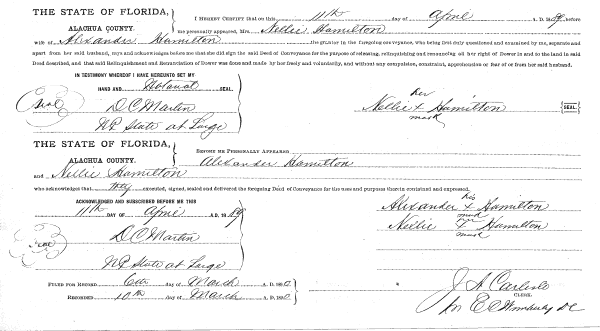 THE STATE OF FLORIDA,
ALACHUA COUNTY.
I HEREBY CERTIFY that on this 11th day of April A. D. 1889, before
me personally appeared, Mrs. Nellie Hamilton
wife of Alexander Hamilton the grantor in the foregoing conveyance, who being first duly questioned and examined by me, separate and
apart from her said husband, says and acknowledges before me that she did sign the said Deed of Conveyance for the purpose of releasing, relinquishing and renouncing all her right of Dower in and to the land in said
Deed described, and that said Relinquishment and Renunciation of Dower was done and made by her freely and voluntarily, and without any compulsion, constraint, apprehension or fear of or from her said husband.
IN TESTIMONY WHEREOF I HAVE HEREUNTO SET MY
HAND AND Notarial SEAL.
Seal
D C Martin
NP State at Large
her
Nellie x Hamilton SEAL
mark
THE STATE OF FLORIDA,
ALACHUA COUNTY.
BEFORE ME PERSONALLY APPEARED
Alexander Hamilton
and Nellie Hamilton
who acknowledged that they executed, signed, sealed and delivered the foregoing Deed of Conveyance for the uses and purposes therein contained and expressed.
ACKNOWLEDGED AND SUBSCRIBED BEFORE ME THIS
11th DAY OF April A. D. 1889
Seal
D C Martin
NP State at Large
his
Alexander x Hamilton
mark
her
Nellie x Hamilton
mark
FILED FOR RECORD 6th day of March A. D. 1890
RECORDED 10th day of March A. D. 1890
J A Carlisle
CLERK.
E C Wimberly DC